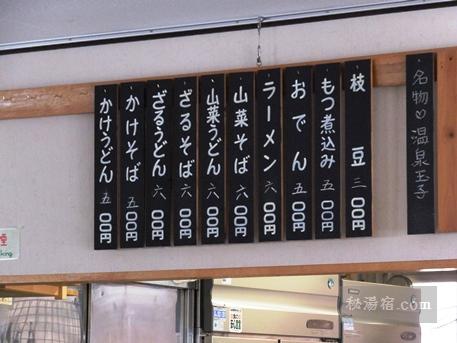 名物♡温泉玉子
枝豆 三〇〇円
もつ煮込み 五〇〇円
おでん 五〇〇円
ラーメン 六〇〇円
山菜そば 六〇〇円
山菜うどん 六〇〇円
ざるそば 六〇〇円
ざるうどん 六〇〇円
かけそば 五〇〇円
かけうどん 五〇〇円
秘湯宿.com